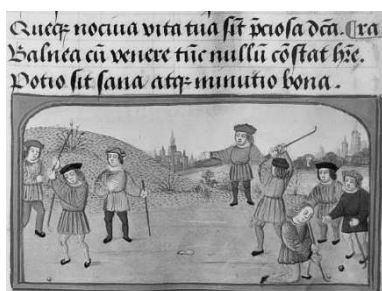 Queq; nociua vita tua sit p̄ciosa dc̄a. Cra
Balnea cū venere tūc nullū cōstat hr̄e.
Potio sit sana atq; minutio bona.